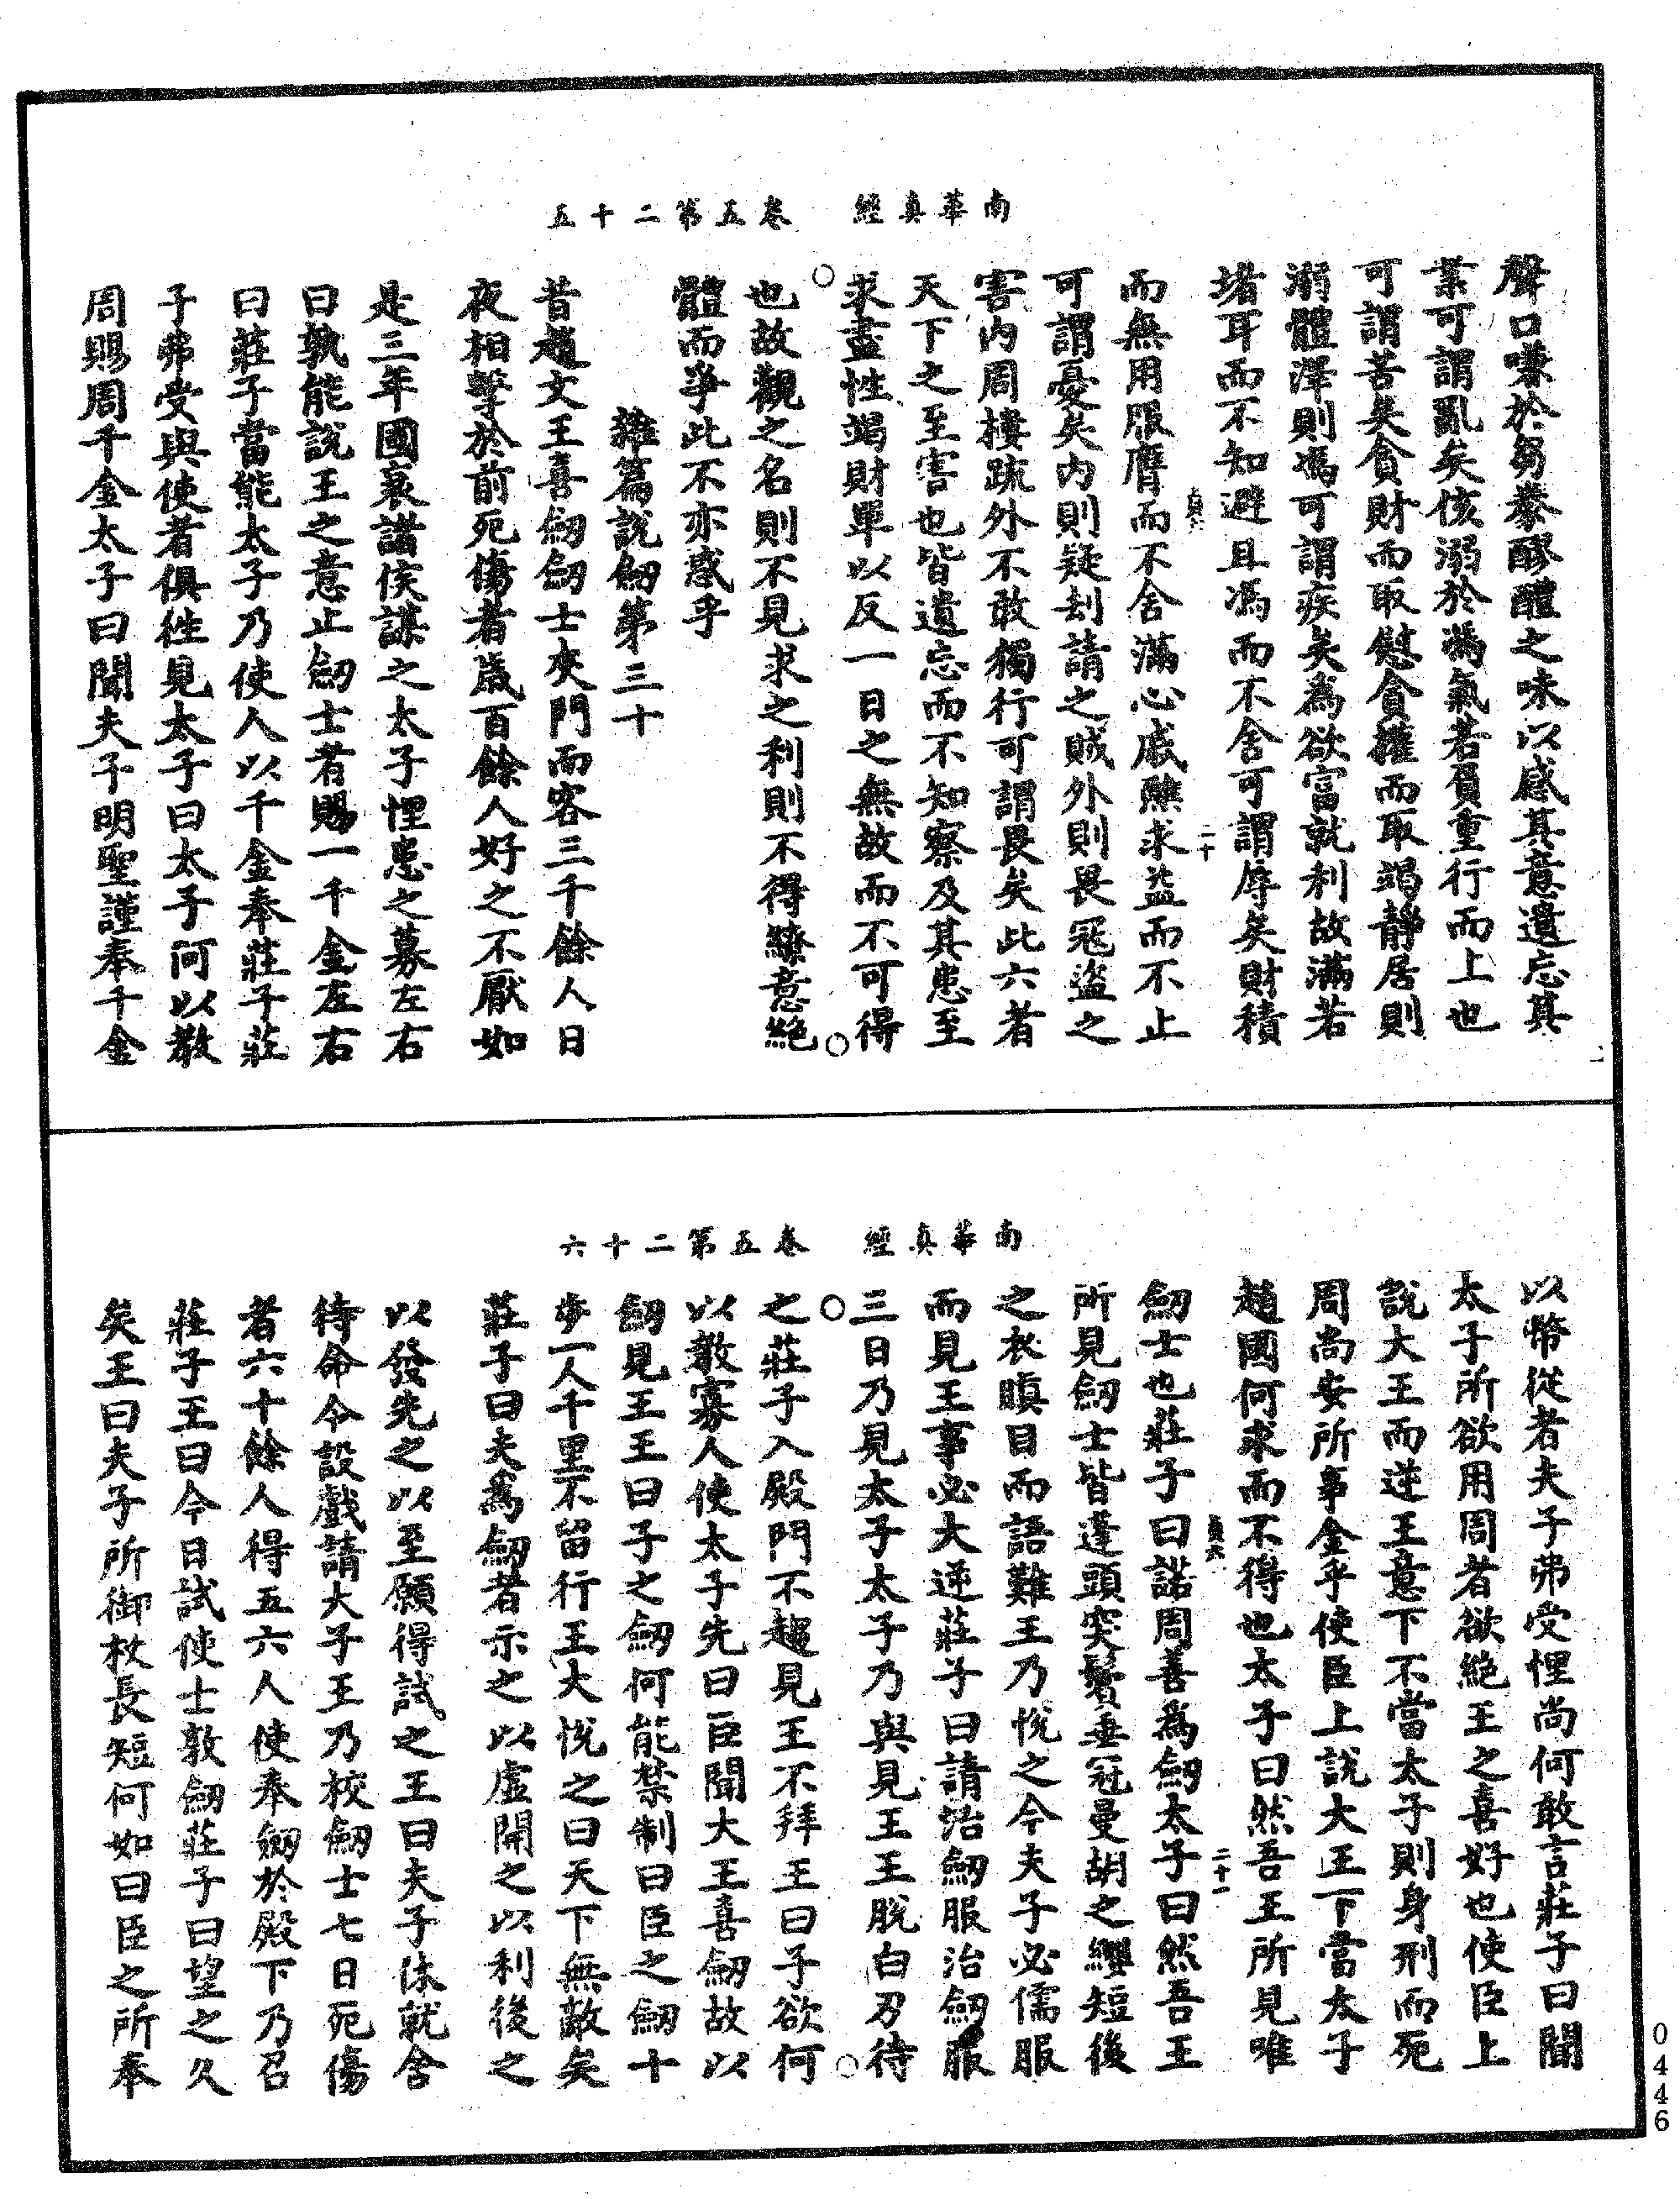 南華真經　卷五第二十五
聲口嗛於芻豢醪醴之味以感其意遺忘其
業可謂亂矣侅溺於馮氣若負重行而上也
可謂苦矣貪財而取慰貪權而取竭靜居則
溺體澤則馮可謂疾矣為欲富就利故滿若
堵耳而不知避且馮而不舍可謂辱矣財積
二十
而無用服膺而不舍滿心戚醮求益而不止
可謂憂矣內則疑刦請之賊外則畏寇盜之
害內周樓疏外不敢獨行可謂畏矣此六者
天下之至害也皆遺忘而不知察及其患至
求盡性竭財單以反一日之無故而不可得
也故觀之名則不見求之利則不得繚意絕
體而爭此不亦惑乎
雜篇說劒第三十
昔趙文王喜劒劒士夾門而客三千餘人日
夜相擊於前死傷者歲百餘人好之不厭如
是三年國衰諸侯謀之太子悝患之募左右
曰孰能說王之意止劒士者賜一千金左右
曰莊子當能太子乃使人以千金奉莊子莊
子弗受與使者俱往見太子曰太子何以教
周賜周千金太子曰聞夫子明聖謹奉千金
南華真經　卷五第二十六
以幣從者夫子弗受悝尚何敢言莊子曰聞
太子所欲用周者欲絕王之喜好也使臣上
說大王而逆王意下不當太子則身刑而死
周尚安所事金乎使臣上說大王下當太子
趙國何求而不得也太子曰然吾王所見唯
二十一
劒士也莊子曰諾周善為劒太子曰然吾王
所見劒士皆蓬頭突鬢垂冠曼胡之纓短後
之衣瞋目而語難王乃悅之今夫子必儒服
而見王事必大逆莊子曰請治劒服治劒服
三日乃見太子太子乃與見王王脫白刃待
之莊子入殿門不趨見王不拜王曰子欲何
以教寡人使太子先曰臣聞大王喜劒故以
劒見王王曰子之劒何能禁制曰臣之劒十
步一人千里不留行王大悅之曰天下無敵矣
莊子曰夫為劒者示之以虛開之以利後之
以發先之以至願得試之王曰夫子休就舍
待命令設戲請夫子王乃校劒士七日死傷
者六十餘人得五六人使奉劒於殿下乃召
莊子王曰今日試使士敦劒莊子曰望之久
矣王曰夫子所御杖長短何如曰臣之所奉
0446